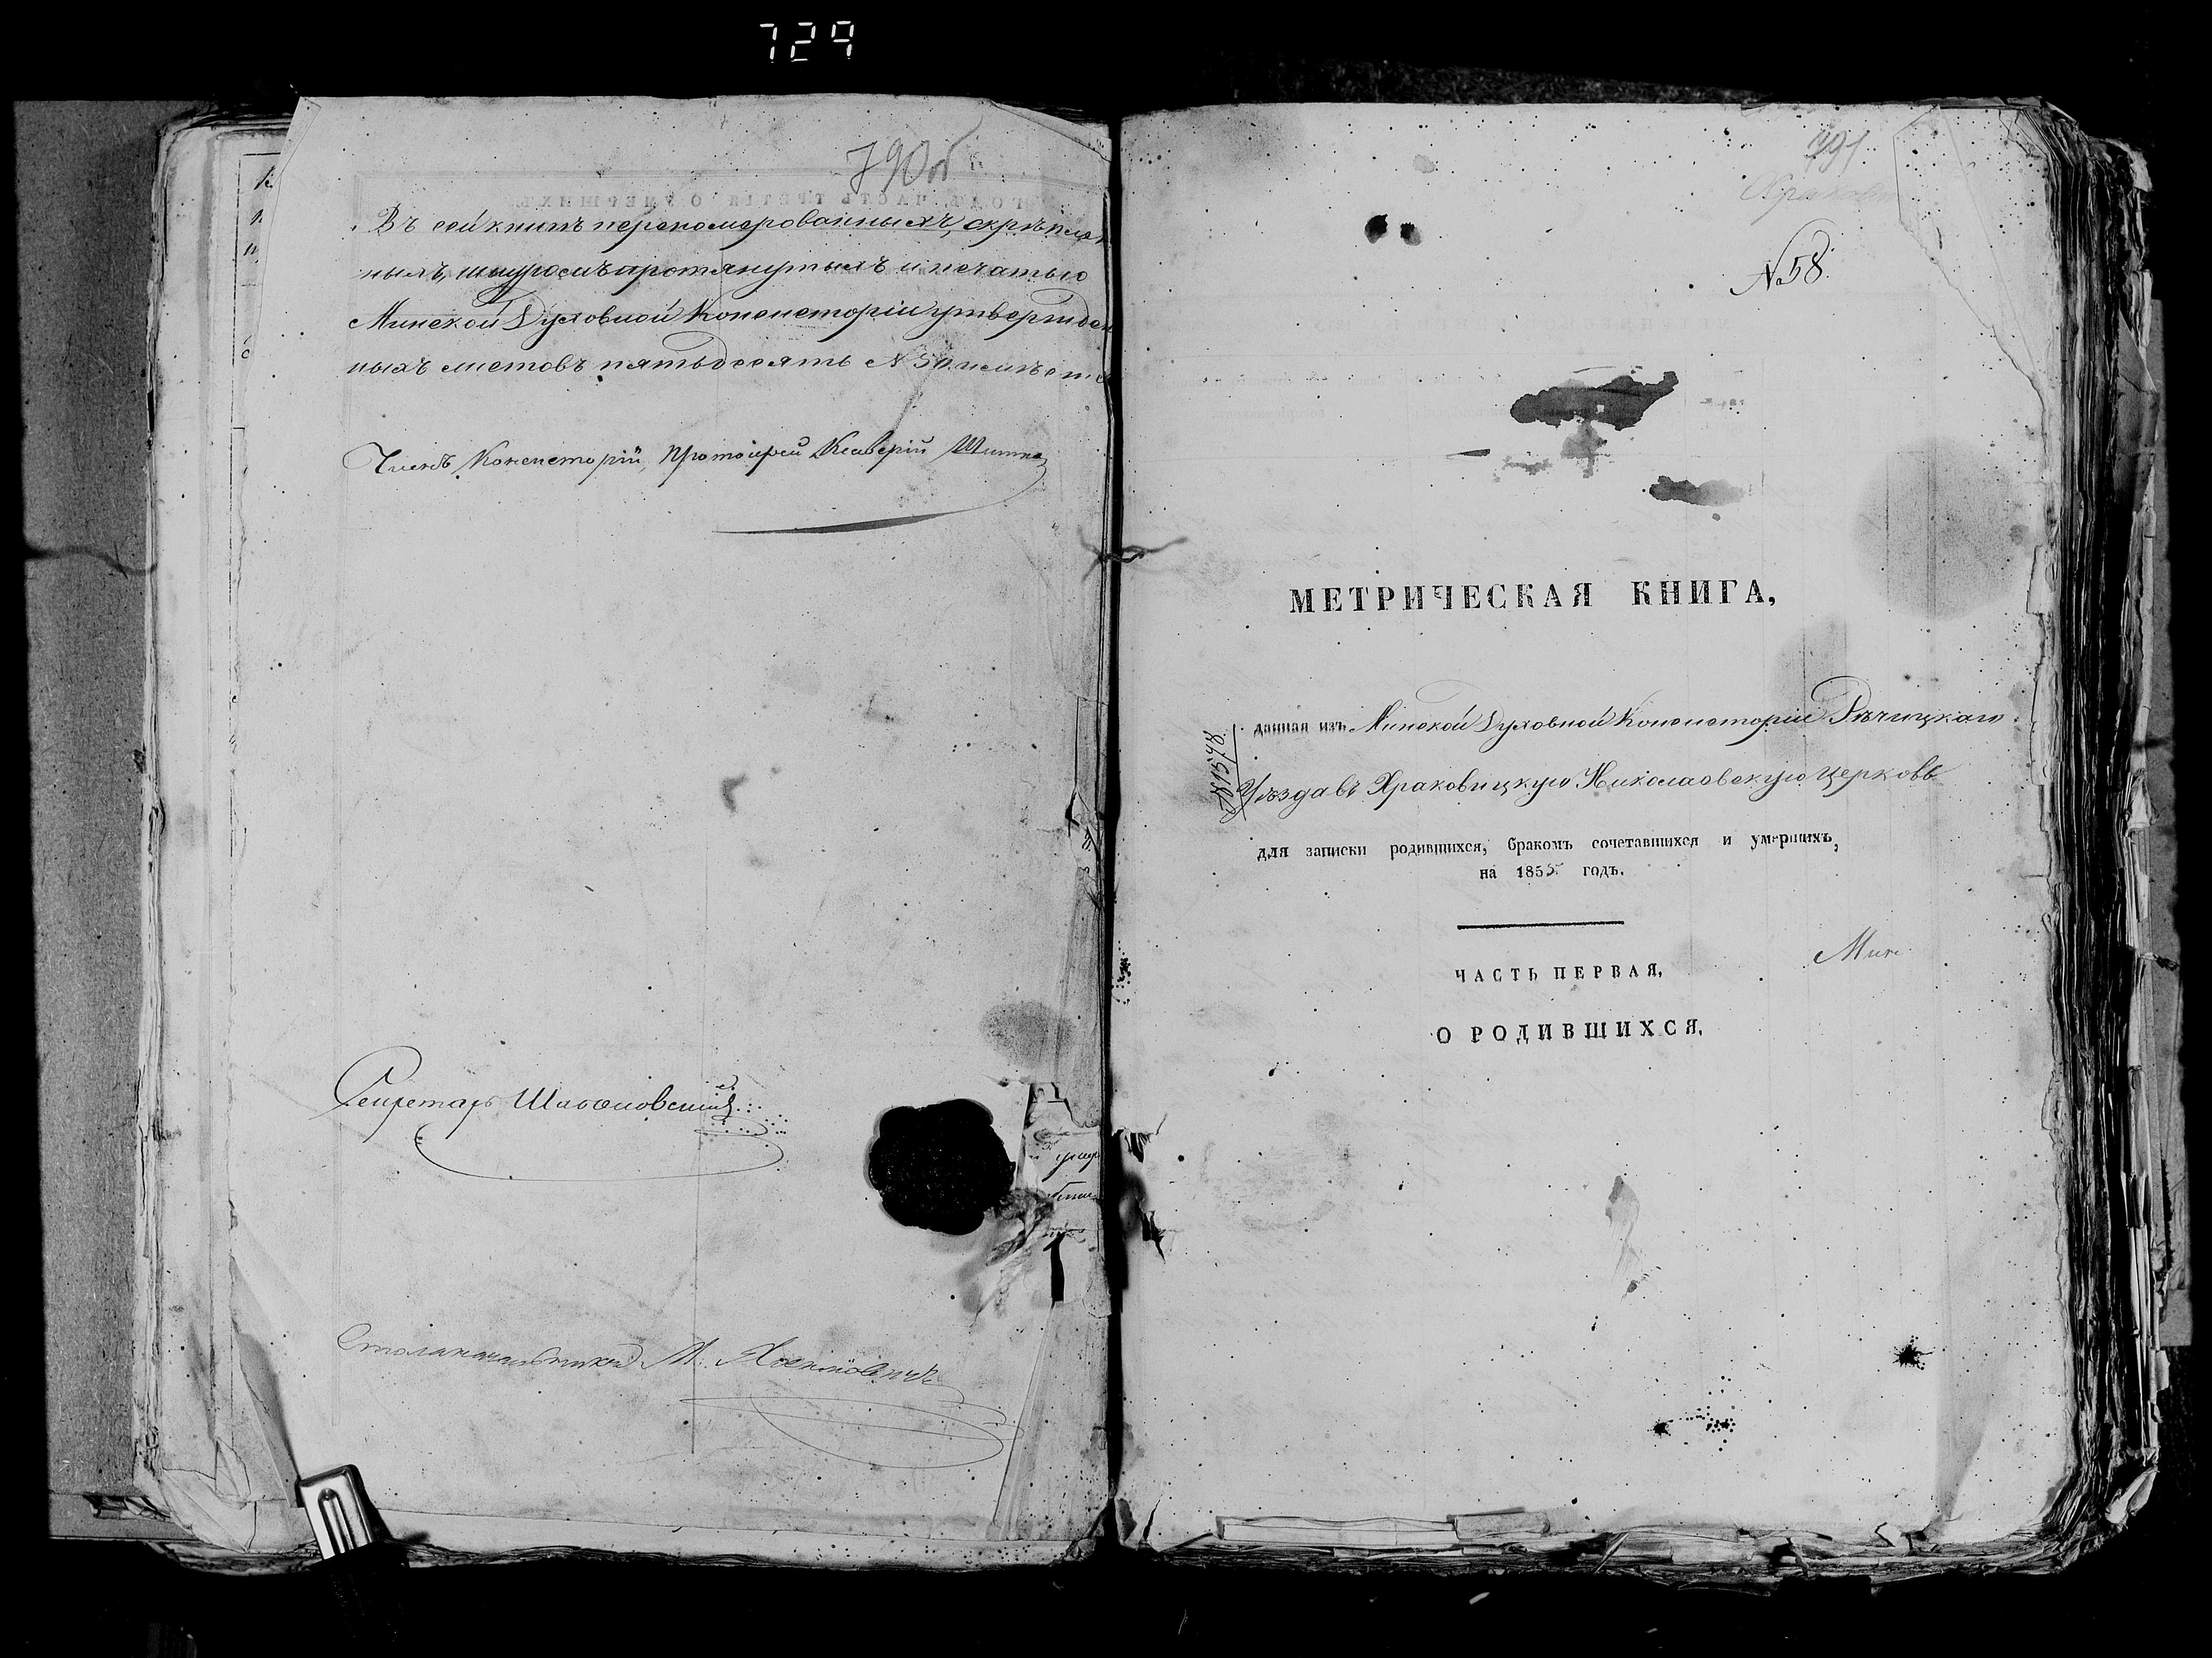 729
790об
Въ сей книгѣ перепомерованныхъ, скрѣплен
ныхъ, шнуромъ протянутыхъ и печатью
Минской Духовной Консисторіи утвержден
ныхъ листовъ пятьдесятъ №50
Членъ Консисторіи, Протоіерей
Секретарь
Столоначальникъ М.
791
№58.
МЕТРИЧЕСКАЯ КНИГА,
данная изъ Минской Духовной Консисторіи Рѣчицкаго
Уѣзда въ Храковицкую Николаевскую церковь
для записки родившихся, бракомъ сочетавшихся и умершихъ,
на 1855 годъ.
Мин
ЧАСТЬ ПЕРВАЯ,
О РОДИВШИХСЯ.